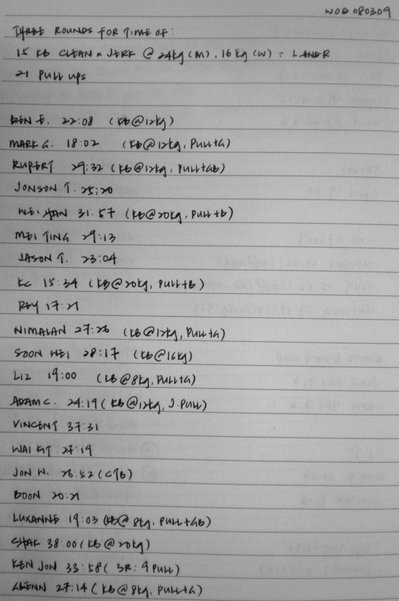 WOD 080309
THREE ROUNDS FOR TIME OF:
15 KB CLEAN & JERK @ 24kg (M), 16kg (W) - L AND R
21 PULL UPS
BEN F. 22:08 (KB@12kg)
MARK G. 18:02 (KB@12kg, PULL+G)
RUPERT 29:32 (KB@12kg, PULL+GB)
JONSON T. 25:20
WEI HAN 31:57 (KB@20kg, PULL+B)
MEI TING 29:13
JASON T. 23:04
KC 15:34 (KB@20kg, PULL+B)
REY 17:21
NIMALAN 27:26 (KB@12kg, PULL+G)
SOON WEI 28:17 (KB@16kg)
LIZ 19:00 (KB@8kg, PULL+G)
ADAM C. 24:19 (KB@12kg, J.PULL)
VINCENT 37:31
WAI KIT 27:19
JON W. 26:52 (C&B)
BOON 20:21
LUXANNE 19:03 (KB@8kg, PULL+GB)
SHAK 38:00 (KB@20kg)
KEN JON 33:58 (3R: 9 PULL)
GLENN 27:14 (KB@8kg, PULL+G)